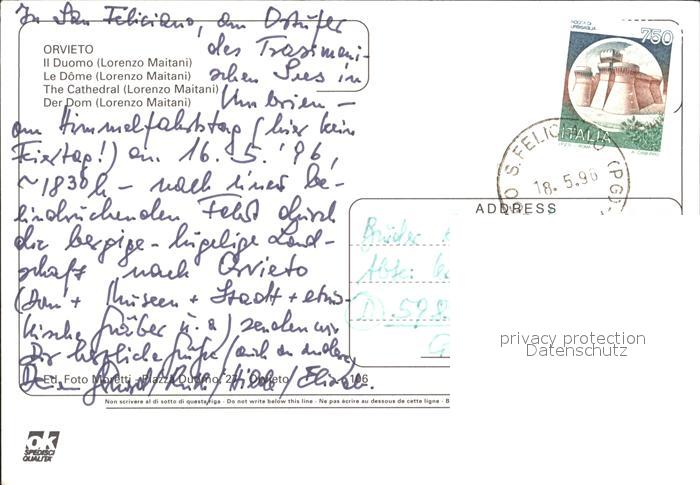 In San Feliciano, am Ostufer
des Trasimeni-
schen Sees in
Umbrien –
am Himmelfahrtstag (hier kein
Feiertag!) am 16. 5. '96,
~ 1830h – nach einer be-
eindruckenden Fahrt durch
die bergige - hügelige Land-
schaft nach Orvieto
(Dom + Museen + Stadt + etrus-
kische Gräber u. a) senden wir
Dir herzliche Grüße / auch an andere
ORVIETO
Il Duomo (Lorenzo Maitani)
Le Dôme (Lorenzo Maitani)
The Cathedral (Lorenzo Maitani)
Der Dom (Lorenzo Maitani)
Ed. Foto Moretti - Piazza Duomo, 23 - Orvieto
106
Non scrivere al di sotto di questa riga - Do not write below this line - Ne pas écrire au dessous de cette ligne - B
ok
SPEDISCI
QUALITA'
ROCCA DI
URBISAGLIA
750
ITALIA
S. FELICIANO (PG)
18. 5.96
ADDRESS
Brüder
Abs:
D 598
G
privacy protection
Datenschutz